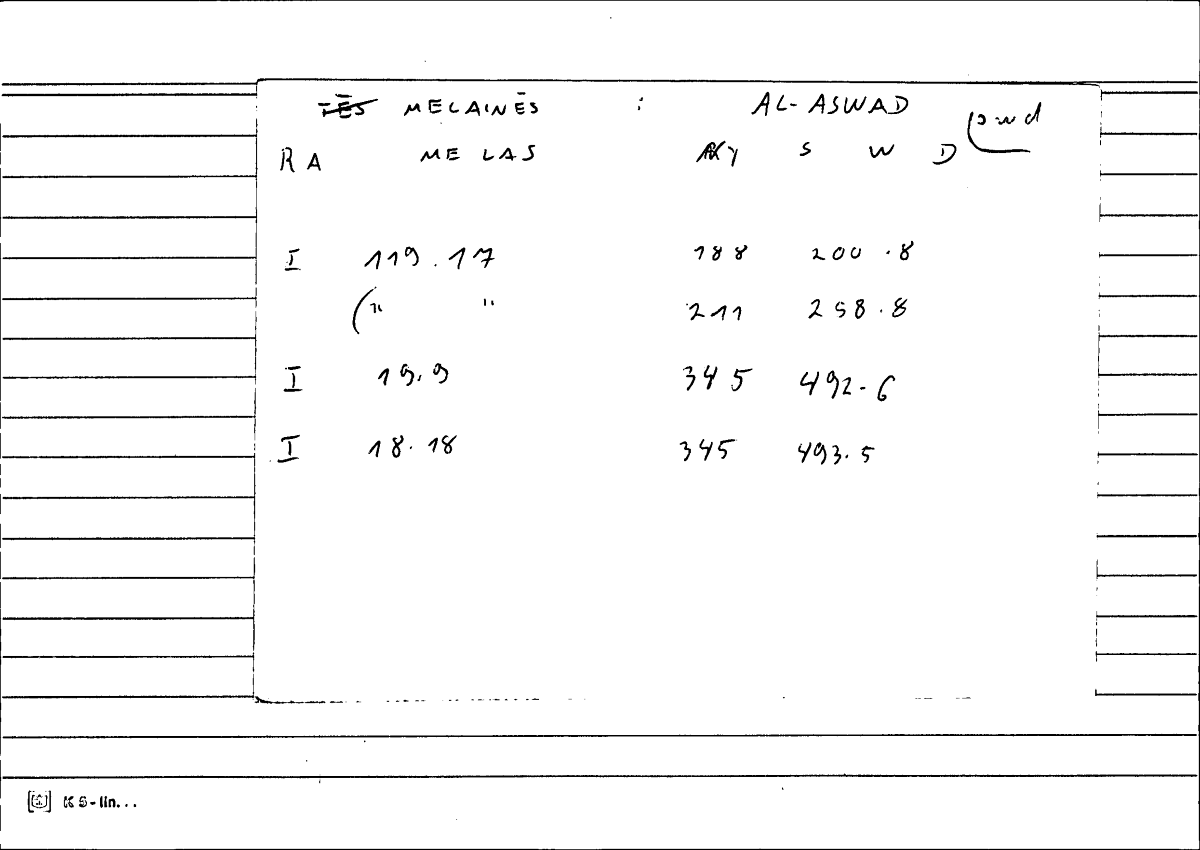 MELAINĒS : AL-ASWAD
RA MELAS Y S W D swd
I 119.17 188 200.8
(" " 211 258.8
I 19.9 345 492.6
I 18.18 345 493.5